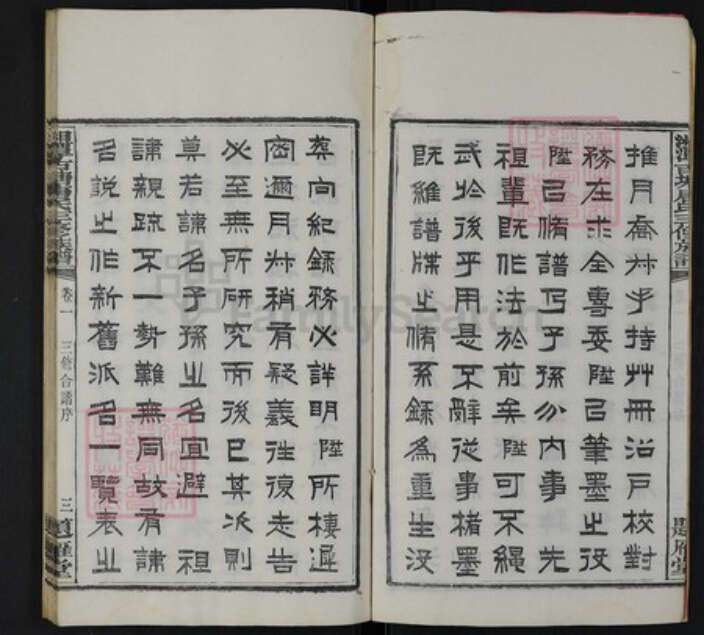 推月喬林手持艸冊沿戶校對
務在求全專委陞己筆墨之役
陞己脩譜乃子孫分內事 先
祖輩旣作法於前矣陞可不繩
武於後乎用是不辭從事楮墨
旣維譜牒之脩系錄為重生沒
葬向紀錄務必詳明陞所棲遲
密邇月林稍有疑義徃復走告
必至無所研究而後已其派則
尊若諱名子孫之名宜避 祖
諱親疏不一勢難無同故有諱
名說之作新舊派名一覽表之
卷一
三修合譜序
三
FamilySearch